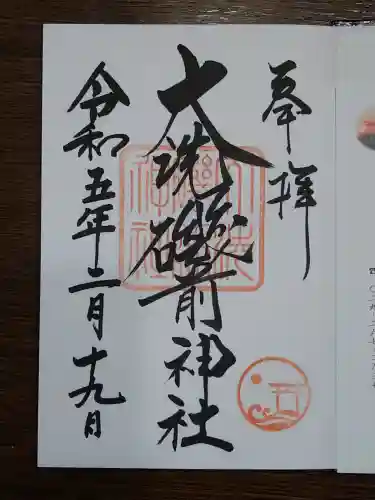 奉拝
大洗磯前神社
令和五年二月十九日